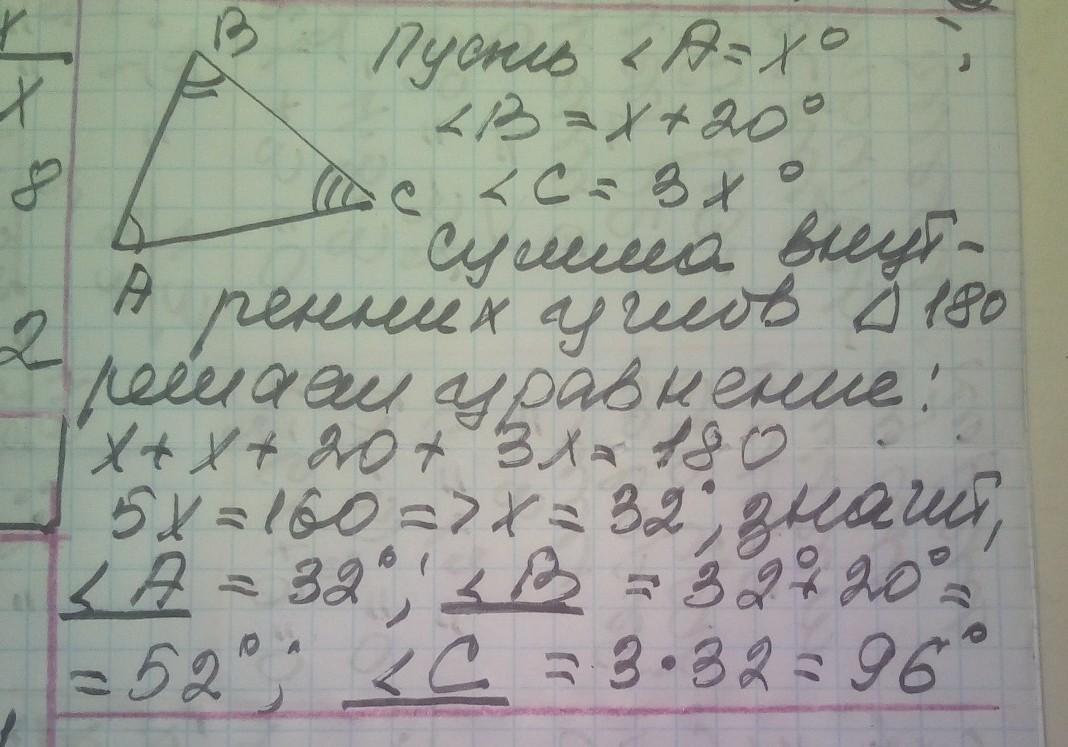 B
Пусть <A = x°
<B = x + 20°
<C = 3x°
C
A
сумма внут-
ренних углов Δ 180
решаем уравнение:
x + x + 20 + 3x = 180
5x = 160 => x = 32°, значит,
<A = 32°; <B = 32° + 20° =
= 52°; <C = 3·32 = 96°
x
x
8
2